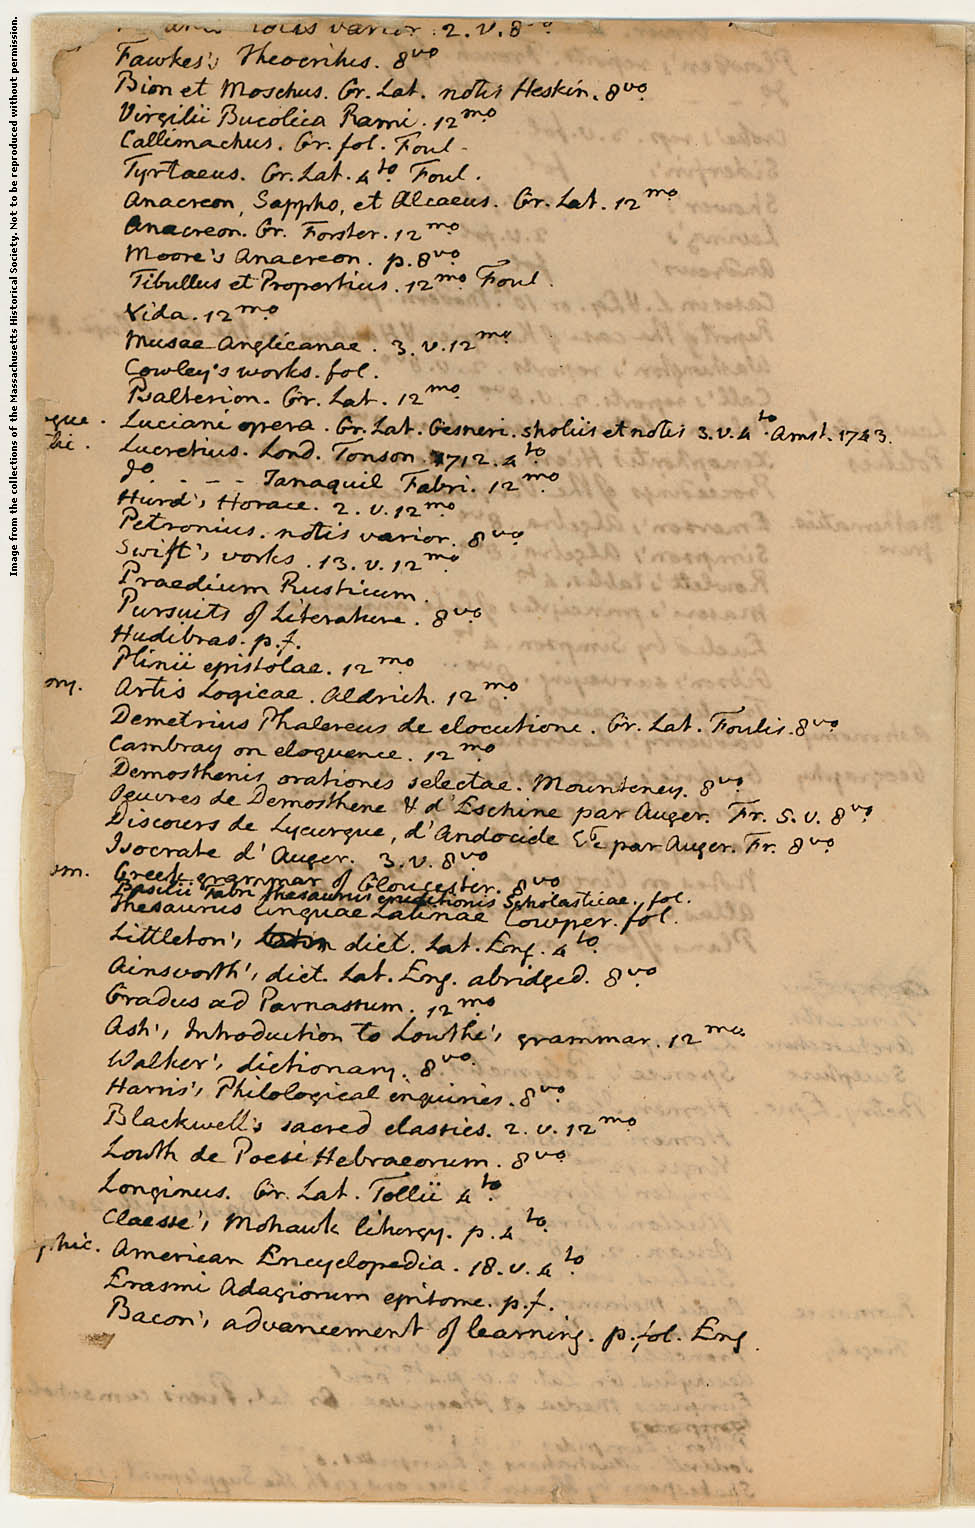 Image from the collections of the Massachusetts Historical Society. Not to be reproduced without permission.
notis varior. 2. v. 8vo
Fawkes's Theocritus. 8vo
Bion et Moschus. Gr. Lat. notis Heskin. 8vo
Virgilii Bucolica Rami. 12mo
Callimachus. Gr. fol. Foul.
Tyrtaeus. Gr. Lat. 4to Foul.
Anacreon, Sappho, et Alcaeus. Gr. Lat. 12mo
Anacreon. Gr. Forster. 12mo
Moore's Anacreon. p. 8vo
Tibullus et Propertius. 12mo Foul.
Vida. 12mo
Musae Anglicanae. 3. v. 12mo
Cowley's works. fol.
Psalterion. Gr. Lat. 12mo
gue. Luciani opera. Gr. Lat. Gesneri. sholiis et notis 3. v. 4to Amst. 1743.
Lucretius. Lond. Tonson. 1712. 4to
do - - - Tanaquil Fabri. 12mo
Hurd's Horace. 2. v. 12mo
Petronius. notis varior. 8vo
Swift's works. 13. v. 12mo
Praedium Rusticum.
Pursuits of Literature. 8vo
Hudibras. p. f.
Plinii epistolae. 12mo
ory. Artis Logicae. Aldrich. 12mo
Demetrius Phalereus de elocutione. Gr. Lat. Foulis. 8vo
Cambray on eloquence. 12mo
Demosthenis orationes selectae. Mounteney. 8vo
Oeuvres de Demosthene & d'Eschine par Auger. Fr. 5. v. 8vo
Discours de Lycurgue, d'Andocide &c par Auger. Fr. 8vo
Isocrate d'Auger. 3. v. 8vo
sm. Greek grammar of Gloucester. 8vo
Basilii Fabri Thesaurus eruditionis Scholasticae. fol.
Thesaurus linguae Latinae Cowper. fol.
Littleton's Latin dict. Lat. Eng. 4to
Ainsworth's dict. Lat. Eng. abridged. 8vo
Gradus ad Parnassum. 12mo
Ash's Introduction to Lowthe's grammar. 12mo
Walker's dictionary. 8vo
Harris's Philological enquiries. 8vo
Blackwell's sacred classics. 2. v. 12mo
Lowth de Poesi Hebraeorum. 8vo
Longinus. Gr. Lat. Tollii 4to
Claesse's Mohawk liturgy. p. 4to
phic. American Encyclopedia. 18. v. 4to
Erasmi Adagiorum epitome. p. f.
Bacon's advancement of learning. p. fol. Eng.